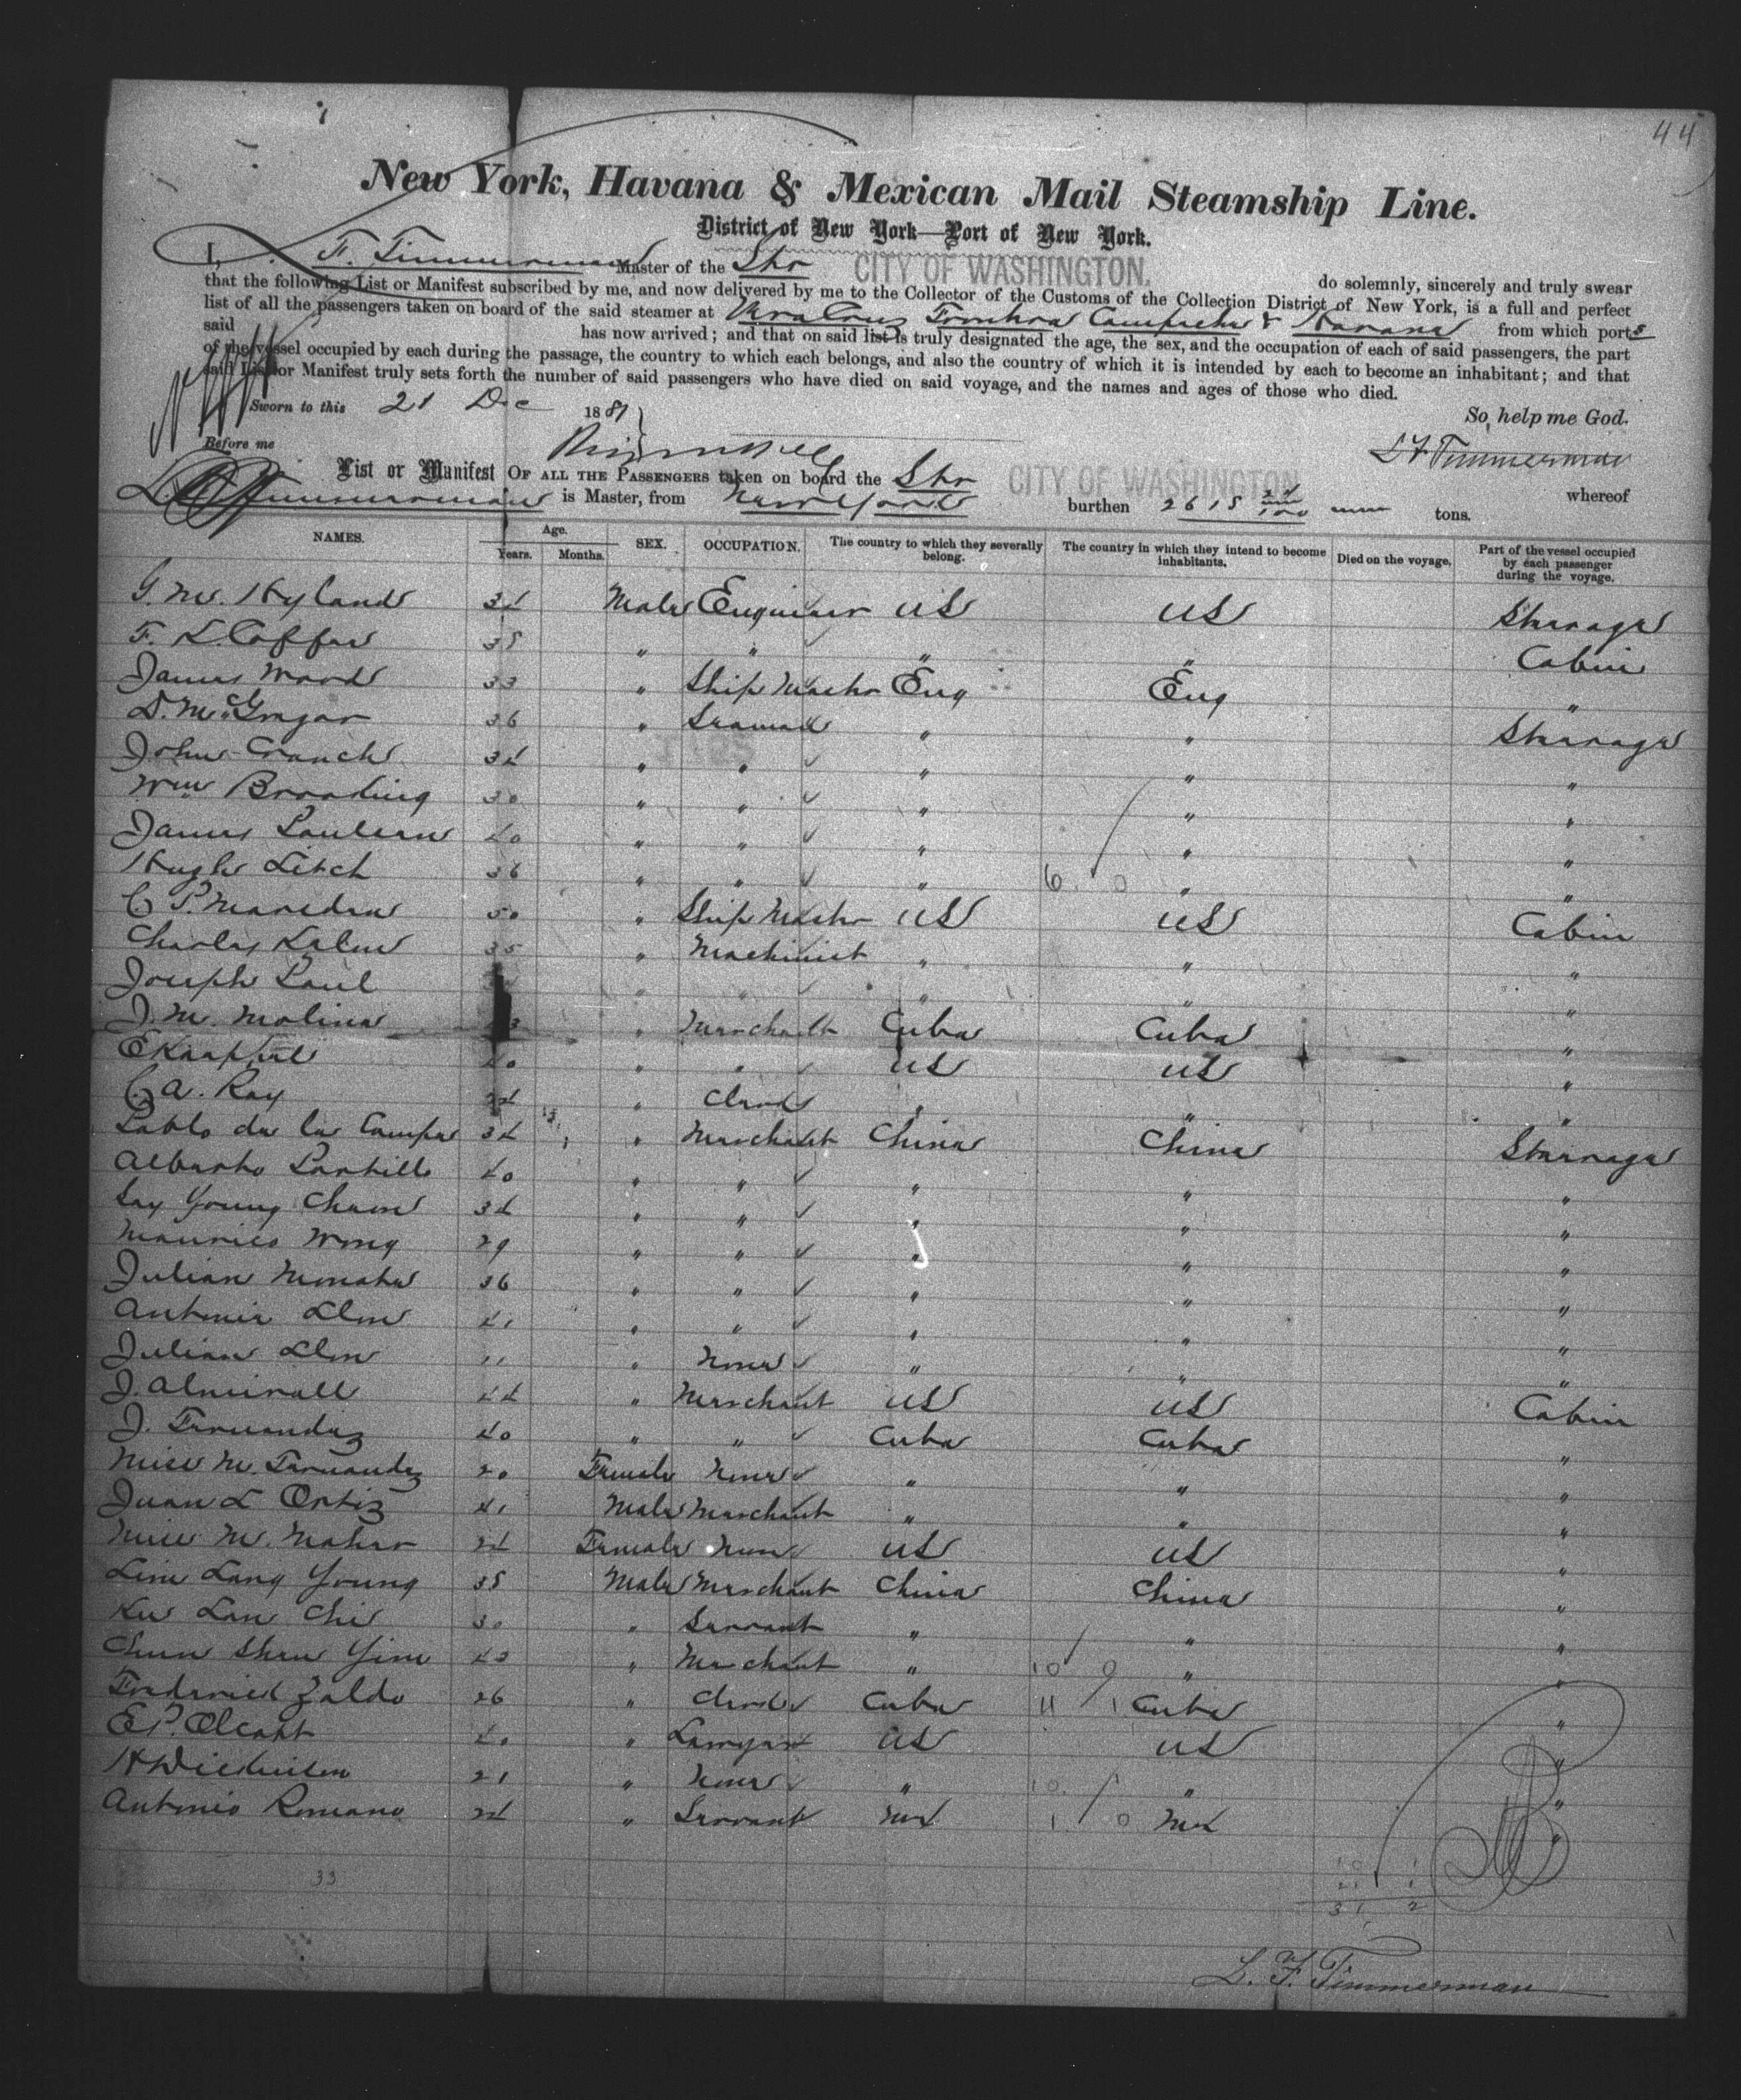 44
New York, Havana & Mexican Mail Steamship Line.
District of New York—Port of New York.
I, L. F. Timmerman Master of the Str CITY OF WASHINGTON. do solemnly, sincerely and truly swear
that the following List or Manifest subscribed by me, and now delivered by me to the Collector of the Customs of the Collection District of New York, is a full and perfect
list of all the passengers taken on board of the said steamer at Vera Cruz Frontera Campeche & Havana from which ports
said has now arrived; and that on said list is truly designated the age, the sex, and the occupation of each of said passengers, the part
of the vessel occupied by each during the passage, the country to which each belongs, and also the country of which it is intended by each to become an inhabitant; and that
said List or Manifest truly sets forth the number of said passengers who have died on said voyage, and the names and ages of those who died.
Sworn to this 21 Dec 1881 So help me God.
Before me L F Timmerman
List or Manifest OF ALL THE PASSENGERS taken on board the Str CITY OF WASHINGTON whereof
L. F. Timmerman is Master, from New York burthen 2615 tons.
NAMES. Age. Years. Months. SEX. OCCUPATION. The country to which they severally belong. The country in which they intend to become inhabitants. Died on the voyage. Part of the vessel occupied by each passenger during the voyage.
G. M. Hyland 34 Male Engineer US US Steerage
F. L. Coffee 35 " " " " Cabin
James Wood 33 " Ship Master Eng Eng "
D. McGregor 36 " Seaman " " Steerage
John Cranch 34 " " " " "
Wm Brooding 30 " " " " "
James 40 " " " " "
Hugh Litch 36 " " " " "
C P. Marsden 50 " Ship Master US US Cabin
Charles 35 " Machinist " " "
Joseph Paul " " " " "
J. M. Molina " Merchant Cuba Cuba "
40 " " US US "
C. A. Ray 34 " Clerk " " "
Pablo de la Campa 34 " Merchant China China Steerage
Alberto Portillo 40 " " " " "
Say Young Chum 34 " " " " "
Maurico Wong 29 " " " " "
Julian 36 " " " " "
Antonio 41 " " " " "
Julian 11 " None " " "
J. Almirall 44 " Merchant US US Cabin
J. Fernandez 40 " " Cuba Cuba "
Miss M. Fernandez 20 Female None " " "
Juan L Ortiz 41 Male Merchant " " "
Miss M. Maher 24 Female None US US "
Lim Lang Young 35 Male Merchant China China "
Ku Lan Chi 30 " Servant " " "
Chun Shru Yim 43 " Merchant " " "
Frederico Zaldo 26 " Clerk Cuba Cuba "
E P. Olcott 40 " Lawyer US US "
H Dickinson 21 " None " " "
Antonio Romano 24 " Servant Mex Mex "
33
L. F. Timmerman